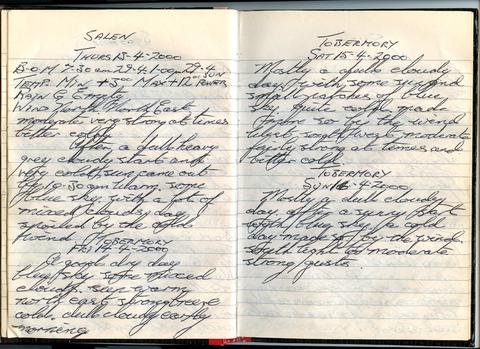 SALEN
THURS 13-4-2000
B.O.M 7-30am 29-4 1-00pm 29.4
TEMP M +3° MAX +12
RAIN
WIND North North East
moderate very strong at times
bitter cold
After a dull heavy
grey cloudy start and
very cold, sun came out
by 10-30am warm some
blue sky with a lot of
mixed clouds, day
spoiled by the cold
wind
TOBERMORY
FRI 14-4-2000
A good dry day
blue sky some mixed
clouds sun warm
north east strong breeze
cold. dull cloudy early
morning
TOBERMORY
SAT 15-4-2000
Mostly a dull cloudy
day, with some sun and
small patches of blue
sky quite cold made
more so by the wind
light south west moderate
fairly strong at times and
bitter cold
TOBERMORY
SUN 16-4-2000
Mostly a dull cloudy
day, after a sunny part
blue sky, a cold
day made so by the wind
light to moderate
strong gusts